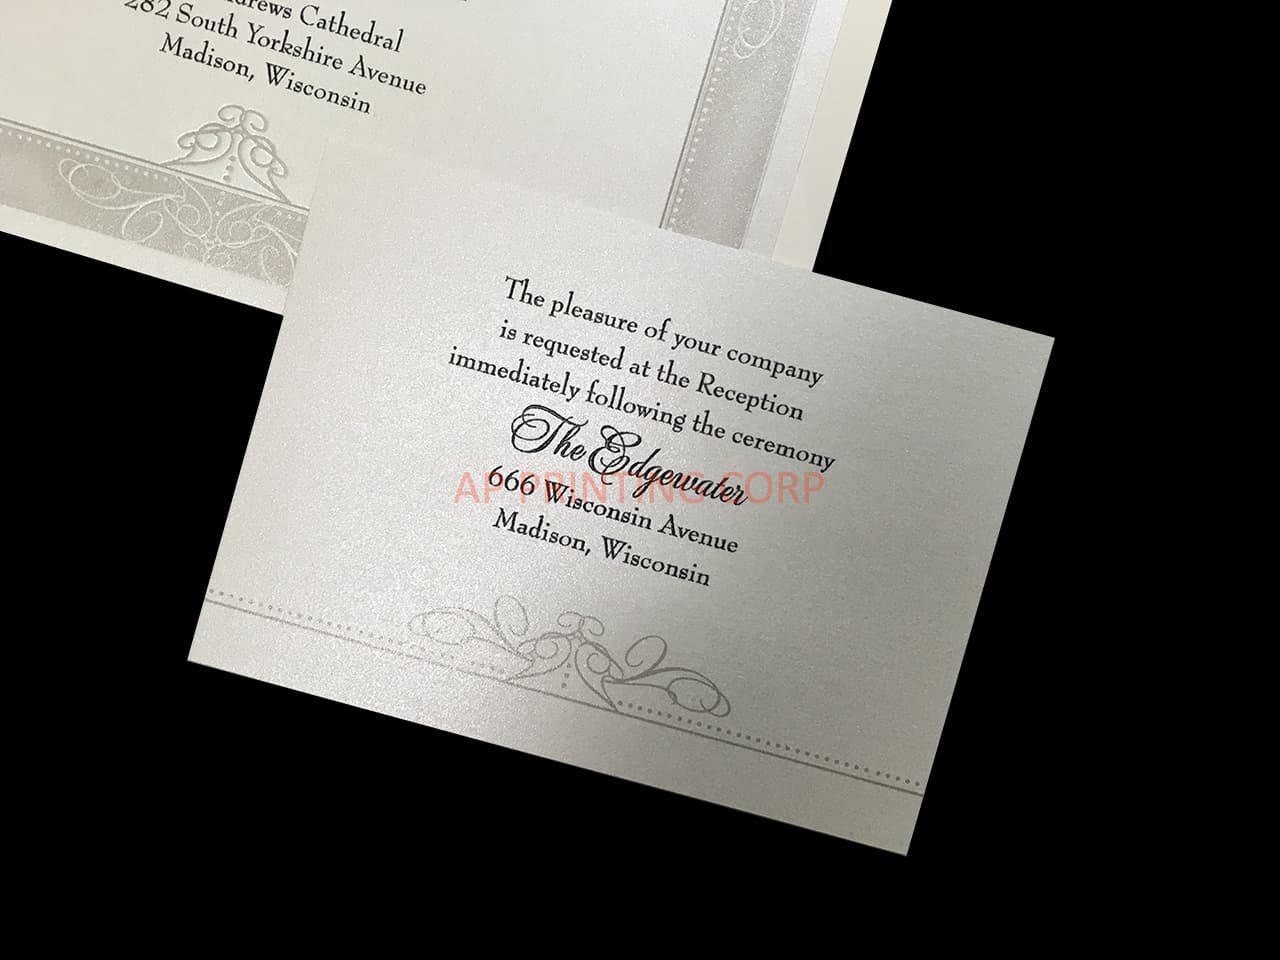 Cathedral
282 South Yorkshire Avenue
Madison, Wisconsin
The pleasure of your company
is requested at the Reception
immediately following the ceremony
The Edgewater
666 Wisconsin Avenue
Madison, Wisconsin
AP PRINTING CORP